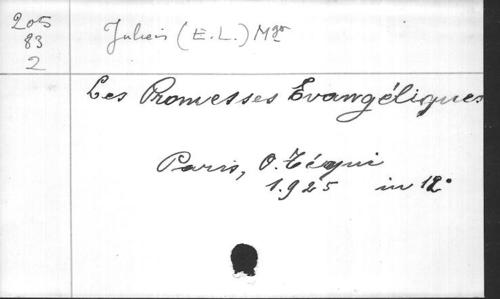 205
83
2
Julien (E.L.) Mgr
Les Promesses Évangéliques
Paris, O. Téqui
1925 in 12°